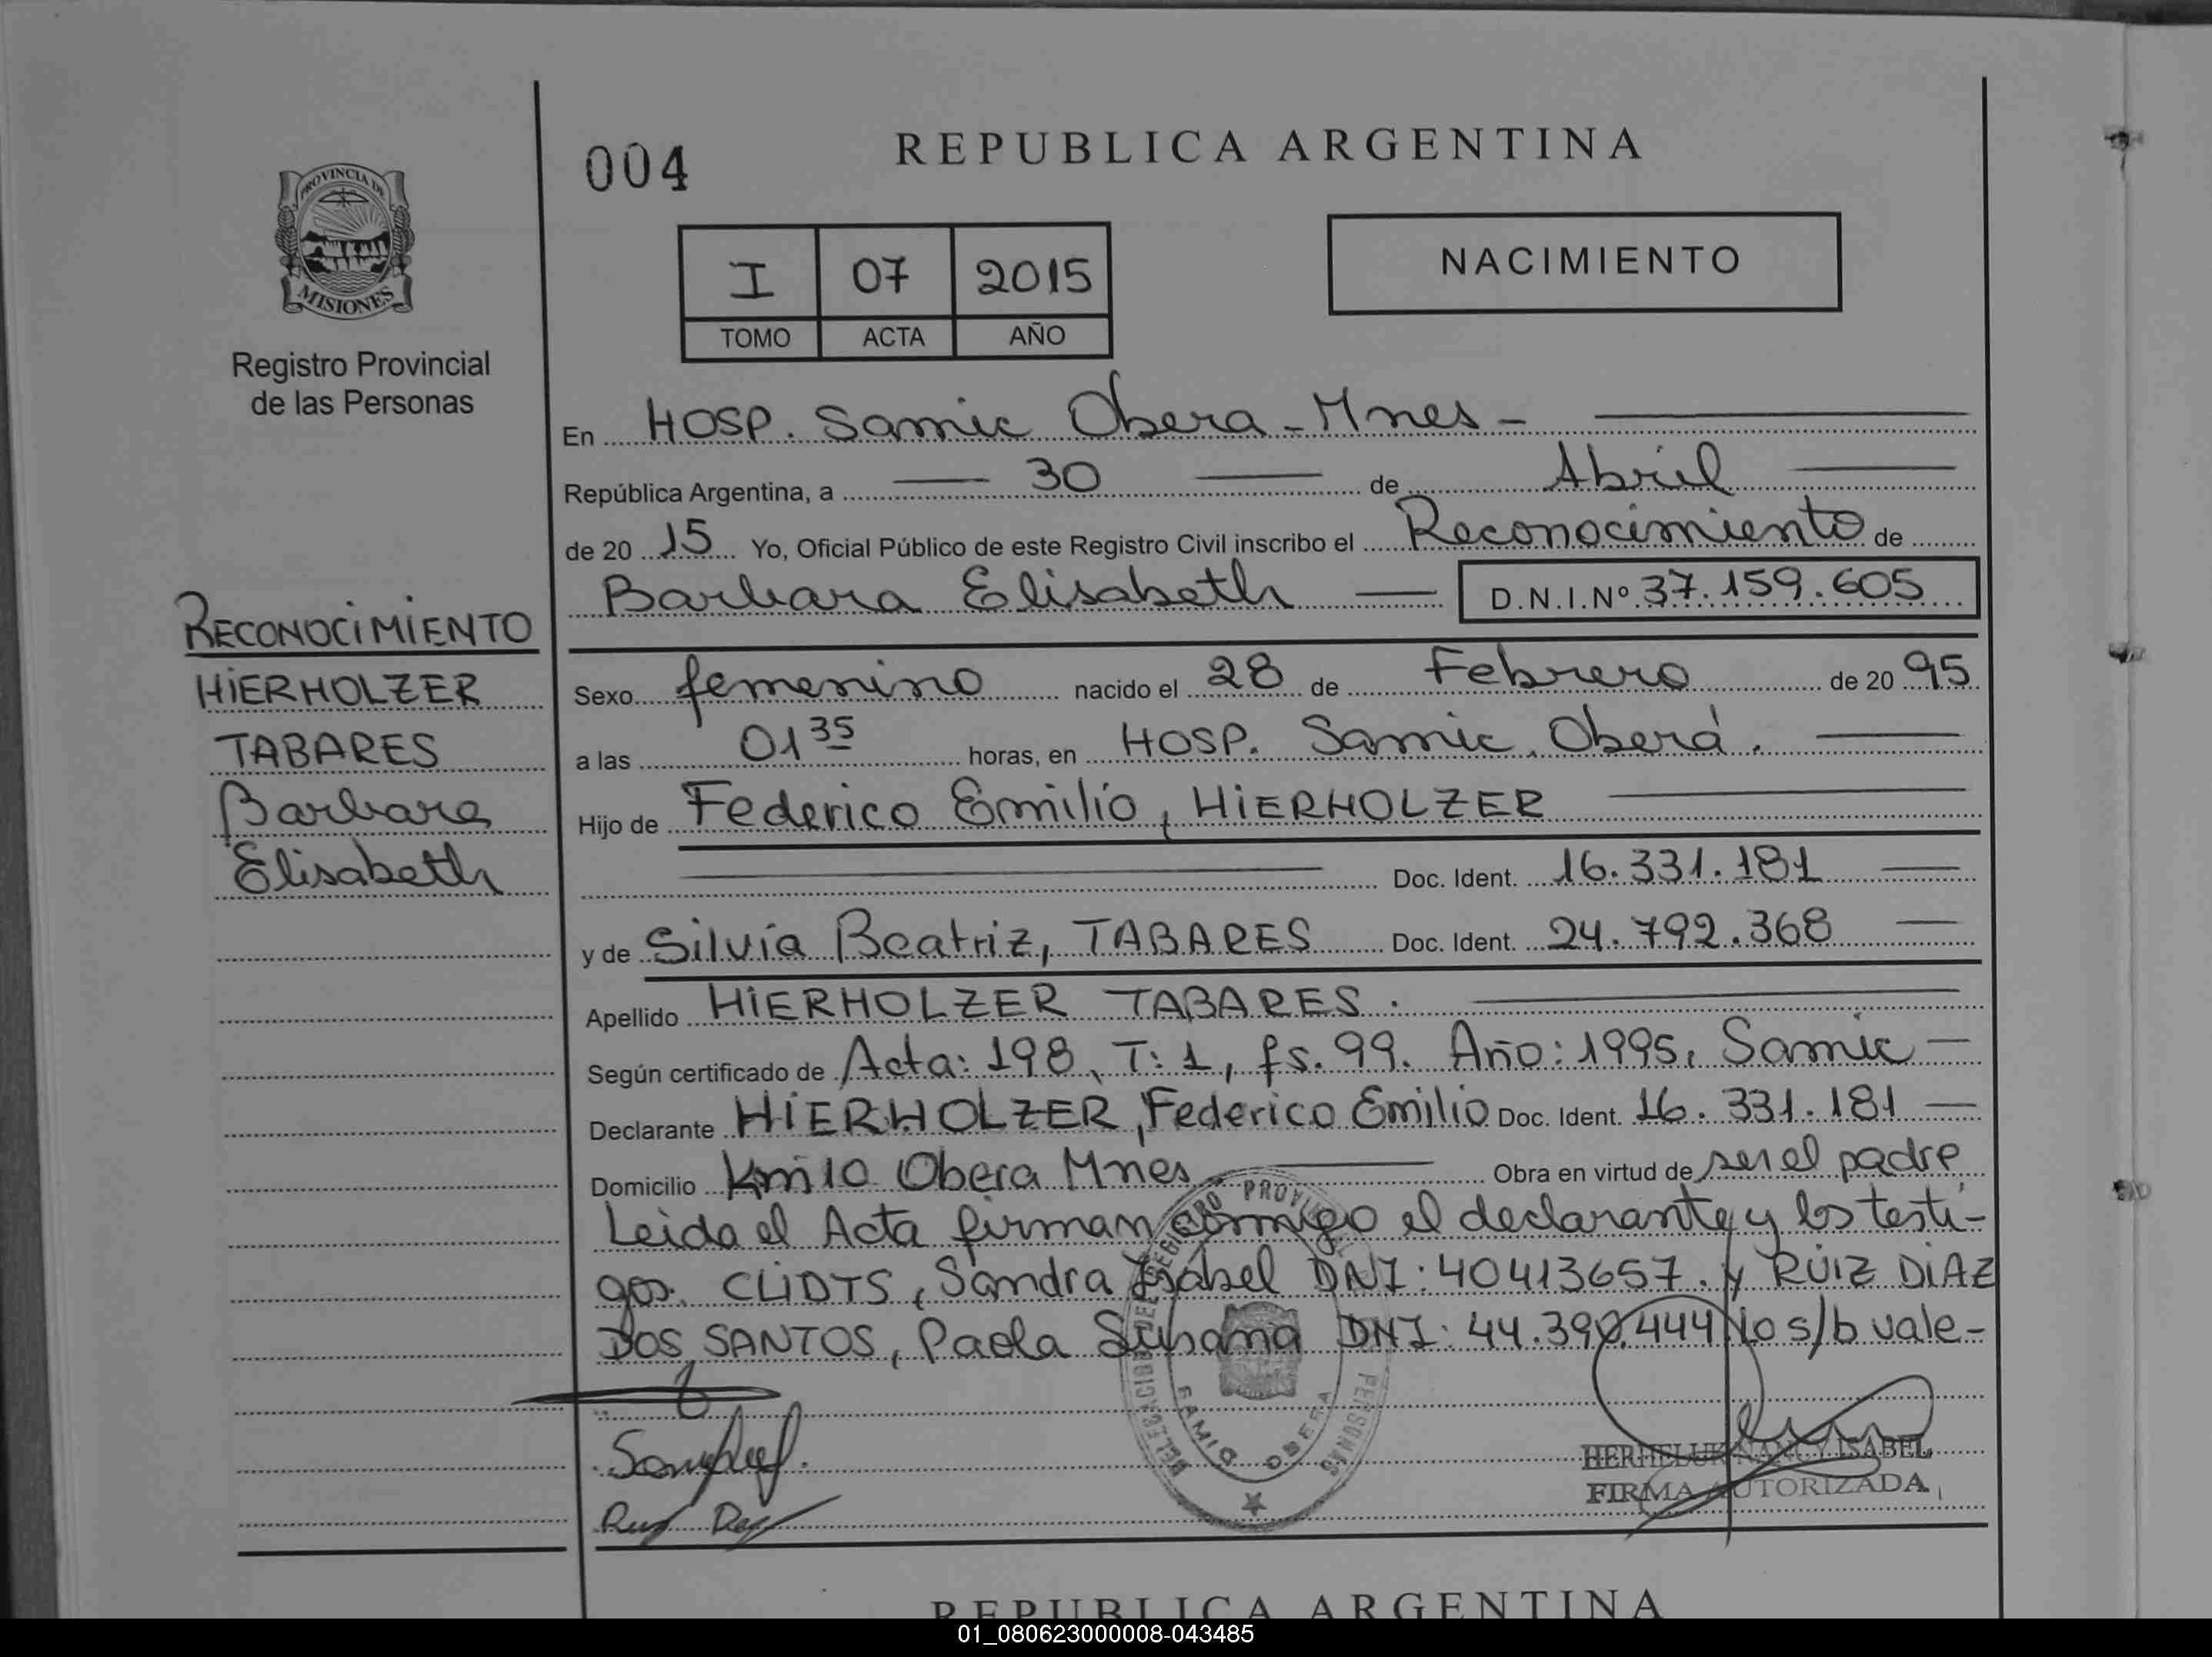 004
REPUBLICA ARGENTINA
PROVINCIA DE
MISIONES
Registro Provincial
de las Personas
I 07 2015
TOMO ACTA AÑO
NACIMIENTO
En HOSP. Samic Obera - Mnes -
República Argentina, a 30 de Abril
de 20 15 Yo, Oficial Público de este Registro Civil inscribo el Reconocimiento de
Barbara Elisabeth D.N.I.Nº 37.159.605
RECONOCIMIENTO
HIERHOLZER
TABARES
Barbara
Elisabeth
Sexo femenino nacido el 28 de Febrero de 20 95
a las 01 35 horas, en HOSP. Samic. Oberá.
Hijo de Federico Emilio, HIERHOLZER
Doc. Ident. 16.331.181
y de Silvia Beatriz, TABARES Doc. Ident. 24.792.368
Apellido HIERHOLZER TABARES.
Según certificado de Acta: 198, T: 1, fs. 99. Año: 1995, Samic -
Declarante HIERHOLZER, Federico Emilio Doc. Ident. 16. 331.181 -
Domicilio Km 10 Obera Mnes Obra en virtud de ser el padre
Leida el Acta firman conmigo el declarante y los testi-
gos. CLIDTS, Sandra Isabel DNI: 40413657. y RUIZ DIAZ
DOS SANTOS, Paola Susana DNI: 44.390.444 Lo s/b vale-
SAMIC OBERA
HERHELUK NANCY ISABEL
FIRMA AUTORIZADA
REPUBLICA ARGENTINA
01_080623000008-043485